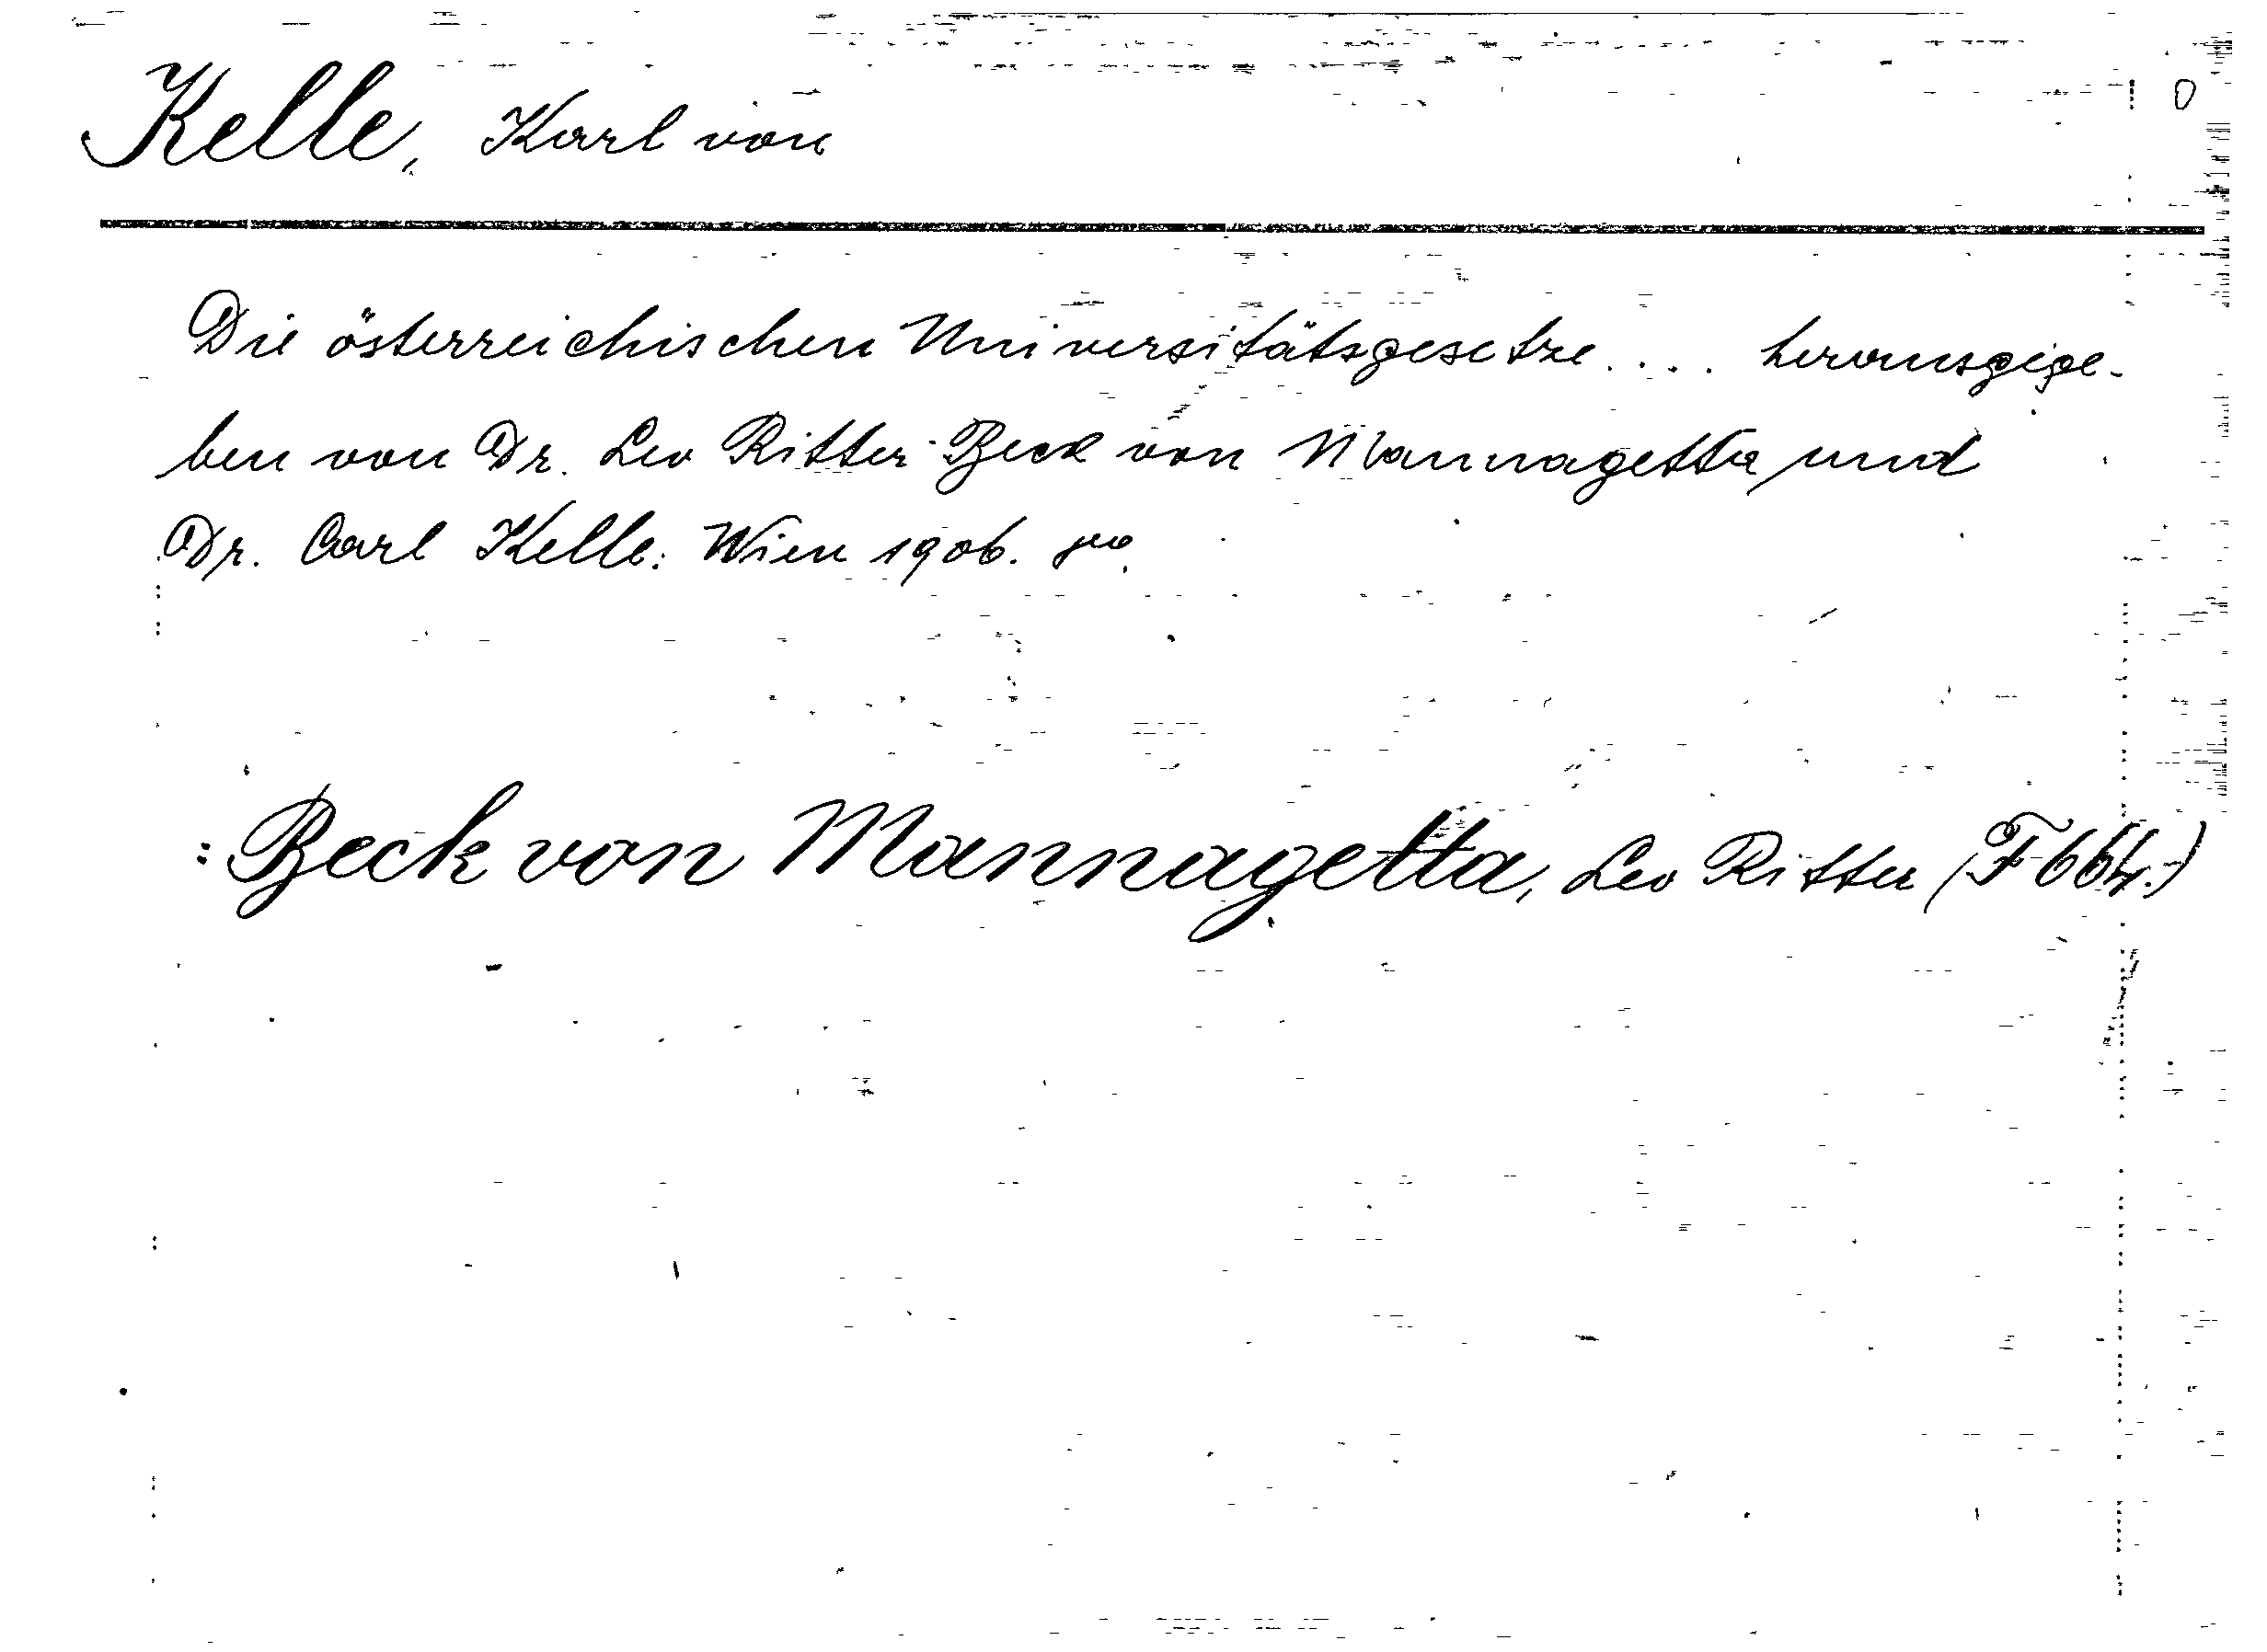 Kelle, Karl von
0
Die österreichischen Universitätsgesetze .... herausgege-
ben von Dr. Leo Ritter Beck von Mannagetta und
Dr. Carl Kelle: Wien 1906. 8°.
: Beck von Mannagetta, Leo Ritter (F 664.)